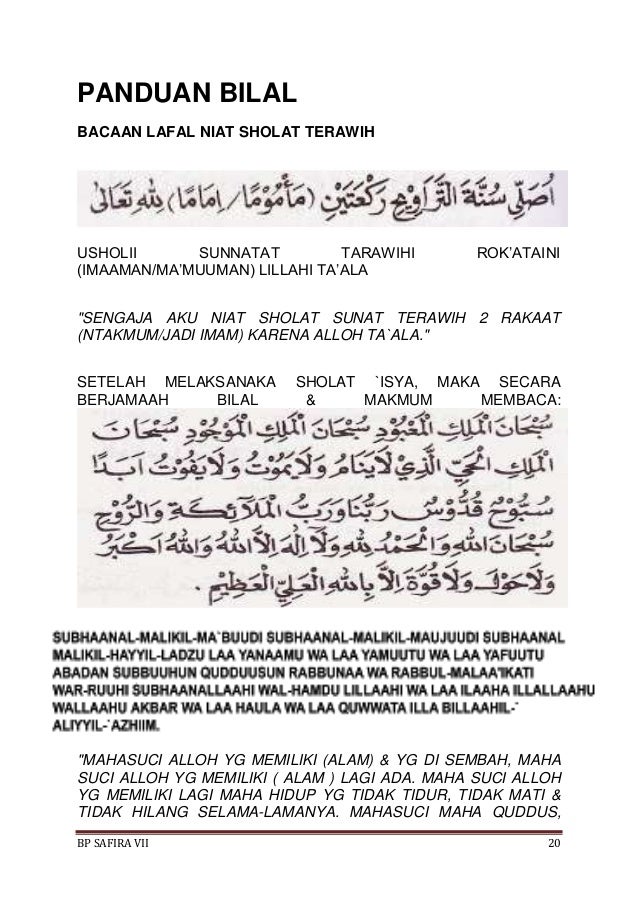 PANDUAN BILAL
BACAAN LAFAL NIAT SHOLAT TERAWIH
اُصَلِّى سُنَّةَ التَّرَاوِيْحِ رَكْعَتَيْنِ (مَأْمُوْمًا/اِمَامًا) لِلّٰهِ تَعَالٰى
USHOLII SUNNATAT TARAWIHI ROK’ATAINI
(IMAAMAN/MA’MUUMAN) LILLAHI TA’ALA
"SENGAJA AKU NIAT SHOLAT SUNAT TERAWIH 2 RAKAAT
(NTAKMUM/JADI IMAM) KARENA ALLOH TA`ALA."
SETELAH MELAKSANAKA SHOLAT `ISYA, MAKA SECARA
BERJAMAAH BILAL & MAKMUM MEMBACA:
سُبْحَانَ الْمَلِكِ الْمَعْبُوْدِ سُبْحَانَ الْمَلِكِ الْمَوْجُوْدِ سُبْحَانَ
الْمَلِكِ الْحَيِّ الَّذِيْ لَا يَنَامُ وَلَا يَمُوْتُ وَلَا يَفُوْتُ اَبَدًا
سُبُّوْحٌ قُدُّوْسٌ رَبُّنَا وَرَبُّ الْمَلَآئِكَةِ وَالرُّوْحِ
سُبْحَانَ اللهِ وَالْحَمْدُ لِلّٰهِ وَلَا اِلٰهَ اِلَّا اللهُ وَاللهُ اَكْبَرُ
وَلَا حَوْلَ وَلَا قُوَّةَ اِلَّا بِاللهِ الْعَلِيِّ الْعَظِيْمِ .
SUBHAANAL-MALIKIL-MA`BUUDI SUBHAANAL-MALIKIL-MAUJUUDI SUBHAANAL
MALIKIL-HAYYIL-LADZU LAA YANAAMU WA LAA YAMUUTU WA LAA YAFUUTU
ABADAN SUBBUUHUN QUDDUUSUN RABBUNAA WA RABBUL-MALAA'IKATI
WAR-RUUHI SUBHAANALLAAHI WAL-HAMDU LILLAAHI WA LAA ILAAHA ILLALLAAHU
WALLAAHU AKBAR WA LAA HAULA WA LAA QUWWATA ILLA BILLAAHIL-`
ALIYYIL-`AZHIIM.
"MAHASUCI ALLOH YG MEMILIKI (ALAM) & YG DI SEMBAH, MAHA
SUCI ALLOH YG MEMILIKI ( ALAM ) LAGI ADA. MAHA SUCI ALLOH
YG MEMILIKI LAGI MAHA HIDUP YG TIDAK TIDUR, TIDAK MATI &
TIDAK HILANG SELAMA-LAMANYA. MAHASUCI MAHA QUDDUS,
BP SAFIRA VII 20